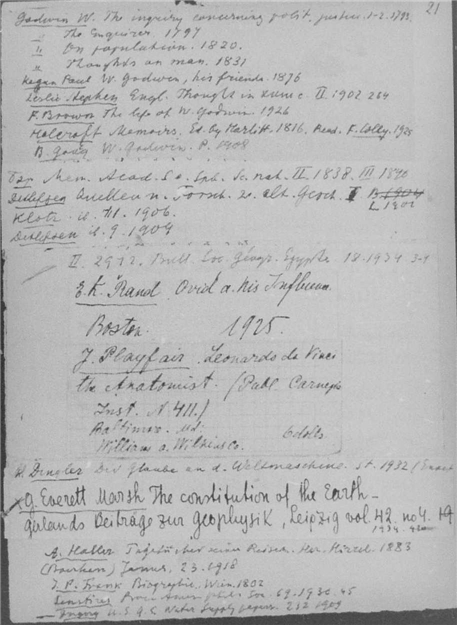 21
Godwin W. The inquiry concerning polit. justice. 1-2. 1793
" The Enquirer 1797
" On population. 1820.
" Thoughts on man. 1831
Kegan Paul W. Godwin, his friends. 1876
Leslie Stephen Engl. Thought in XVIII c. II. 1902 264
F. Brown The life of W. Godwin. 1926
Holcroft Memoirs. Ed. by Hazlitt. 1816. F. Colby. 1925
W. Godwin. P. 1908
Mem. Acad. Sc. Spb. Sc. nat. II 1838. III 1840
Detlefsen Quellen u. Forsch. z. alt. Gesch. I
1902
Klotz 1906.
Detlefsen 9. 1909
II. 2912. Bull. Soc. Géogr. Egypte 18. 1934 3-4
E. K. Rand Ovid a. his Influen.
Boston. 1925.
J. Playfair Leonardo da Vinci
the Anatomist. (Publ. Carnegie
Inst. N 411.)
Baltimore. Md.
Williams a. Wilkins Co. 6 dolls
H. Dingler Der Glaube an d. Weltmaschine. St. 1932
G. Everett Marsh The constitution of the Earth –
Gerlands Beiträge zur Geophysik, Leipzig vol. 42. no 4.
1934
A. Haller Tagebücher seiner Reisen. Her. Hirzel. 1883
23. 1918
J. P. Frank Biographie. Wien. 1802
Proc. Amer. phil. Soc. 69. 1930. 45
U.S.G.S. Water Supply papers. 232 1909